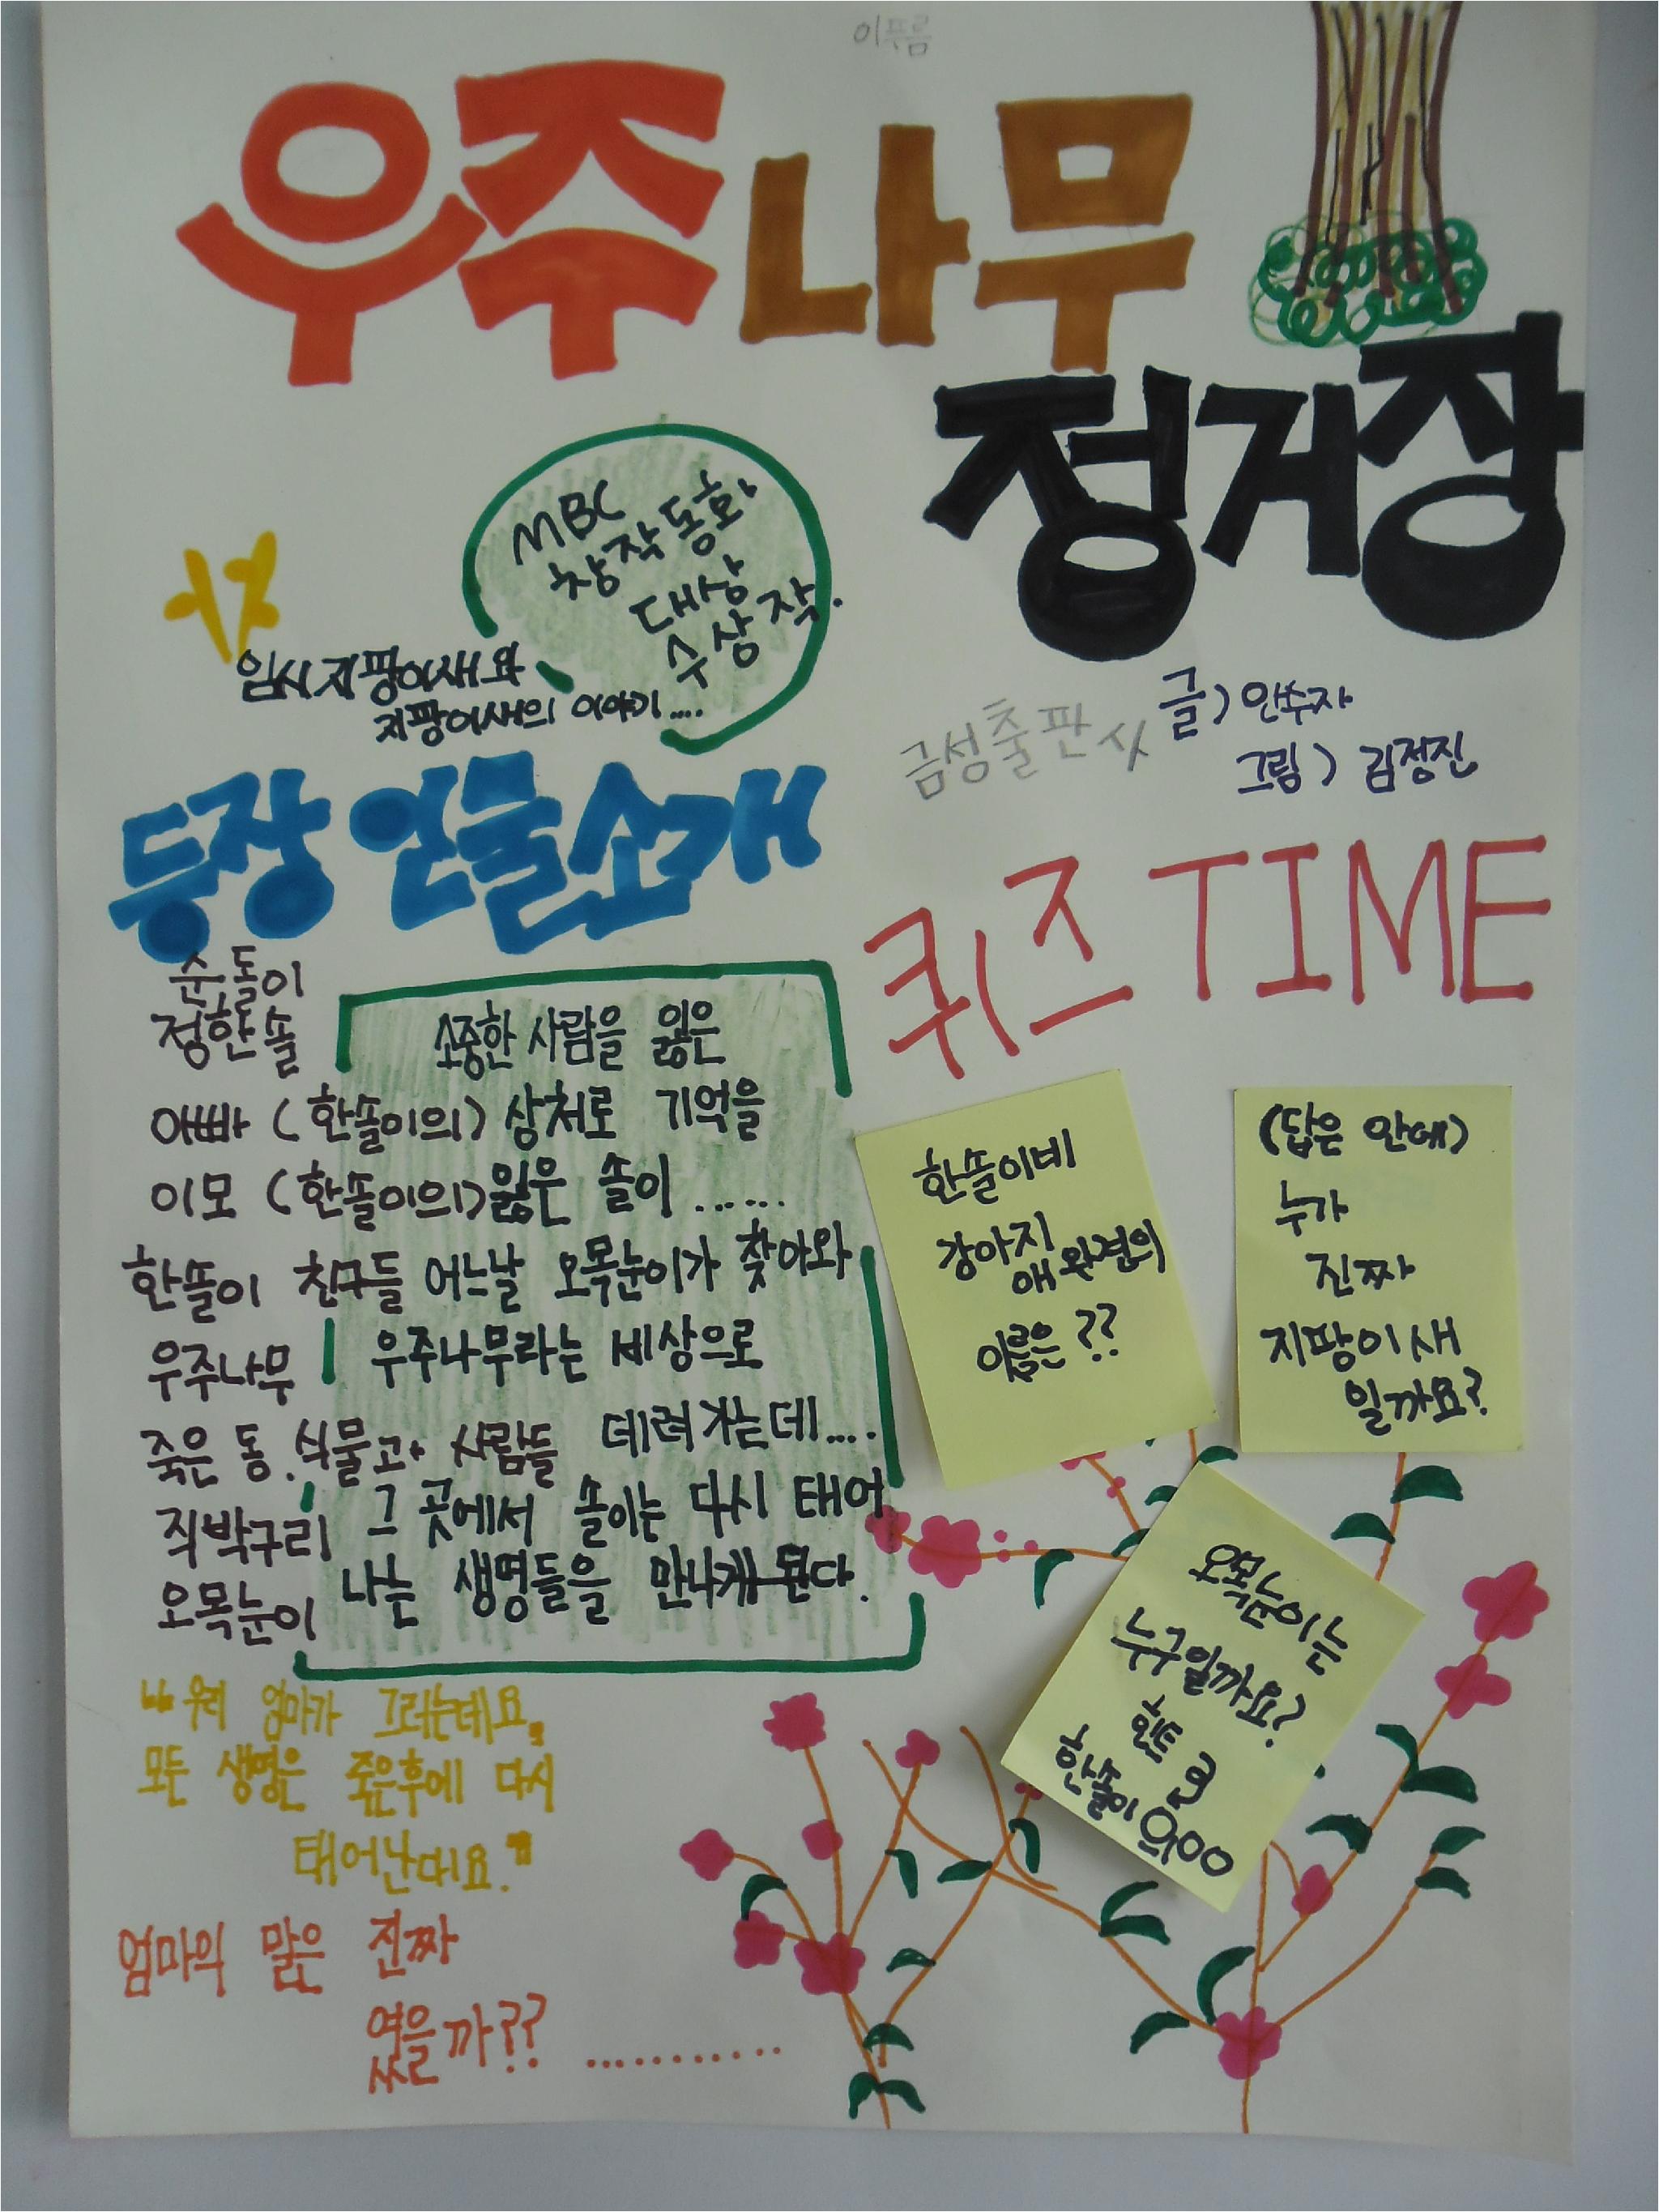 이푸름
우주나무
정거장
MBC
창작동화
대상
수상작.
임시지팡이새와
지팡이새의 이야기....
글) 안수자
그림) 김정진
금성출판사
등장인물소개
순돌이
정한솔
아빠 (한솔이의)
이모 (한솔이의)
한솔이 친구들
우주나무
죽은 동.식물과 사람들
직박구리
오목눈이
소중한 사람을 잃은
상처로 기억을
잃은 솔이 ......
어느날 오목눈이가 찾아와
우주나무라는 비상으로
데려가는데....
그 곳에서 솔이는 다시 태어
나는 생명들을 만나게 된다.
퀴즈 TIME
한솔이네
강아지
애완견의
이름은??
(답은 안에)
누가
진짜
지팡이새
일까요?
오목눈이는
누구일까요?
힌트
한솔이의oo
"우리 엄마가 그러는데요,
모든 생명은 죽은후에 다시
태어난대요."
엄마의 말은 진짜
였을까?? ...........